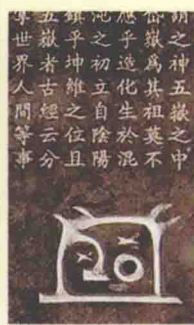 謂之神五嶽之中
岱嶽為其祖莫不
應乎造化生於混
沌之初立自陰陽
鎮乎坤維之位且
五嶽者古經云分
掌世界人間等事